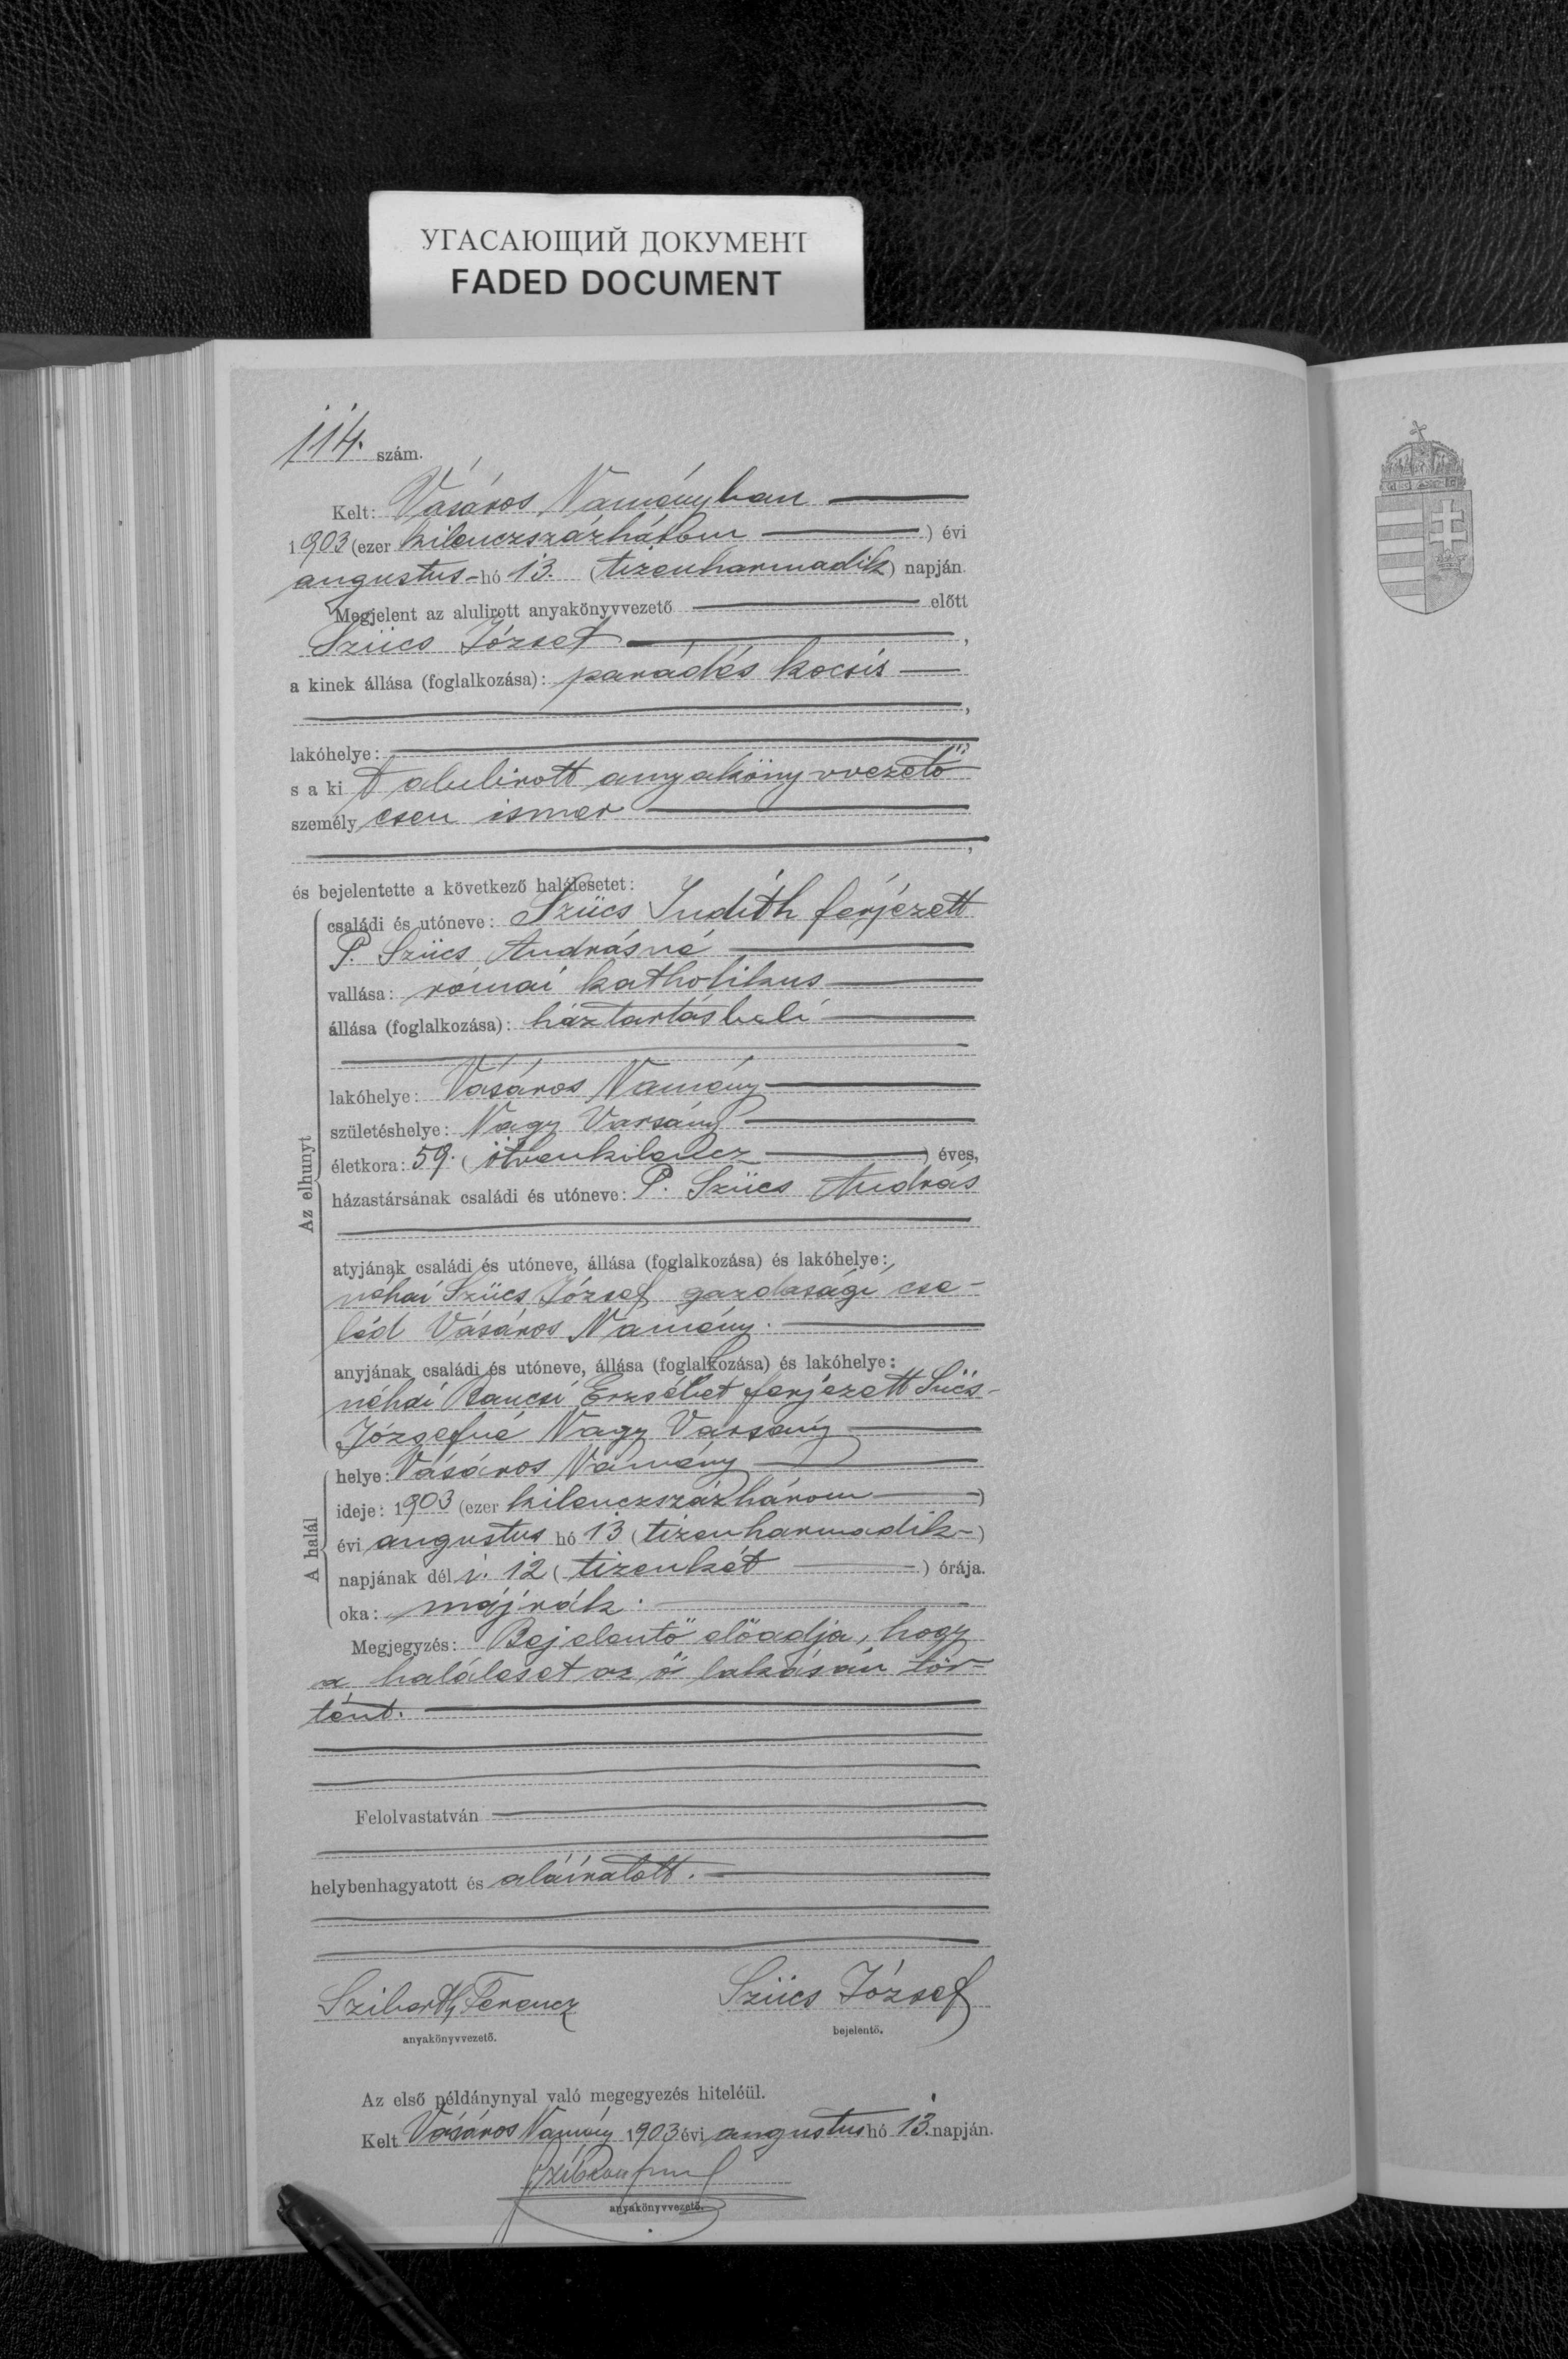 УГАСАЮЩИЙ ДОКУМЕНТ
FADED DOCUMENT
114. szám.
Kelt: Vásáros Naményban
1903 (ezer kilenczszázhárom ) évi
augustus hó 13. (tizenharmadik) napján.
Megjelent az alulirott anyakönyvvezető előtt
Szücs József ,
a kinek állása (foglalkozása): parádés kocsis
,
lakóhelye:
s a kit alulirott anyakönyvvezető
személyesen ismer
,
és bejelentette a következő halálesetet:
Az elhunyt
családi és utóneve: Szücs Judith férjezett
P. Szücs Andrásné
vallása: római katholikus
állása (foglalkozása): háztartásbeli
lakóhelye: Vásáros Namény
születéshelye: Nagy Varsány
életkora: 59. (ötvenkilencz ) éves,
házastársának családi és utóneve: P. Szücs András
atyjának családi és utóneve, állása (foglalkozása) és lakóhelye:
néhai Szücs József gazdasági cse-
léd Vásáros Namény.
anyjának családi és utóneve, állása (foglalkozása) és lakóhelye:
néhai Erzsébet férjezett Sücs
Józsefné Nagy Varsány
A halál
helye: Vásáros Namény
ideje: 1903 (ezer kilenczszázhárom )
évi augustus hó 13 (tizenharmadik)
napjának dél i. 12 (tizenkét ) órája.
oka: májrák.
Megjegyzés: Bejelentő előadja, hogy
a haláleset az ő lakásán tör-
tént.
Felolvastatván
helybenhagyatott és aláiratott.
Ferencz Szücs József
anyakönyvvezető. bejelentő.
Az első példánynyal való megegyezés hiteléül.
Kelt Vásáros Namény 1903 évi augustus hó 13. napján.
anyakönyvvezető.